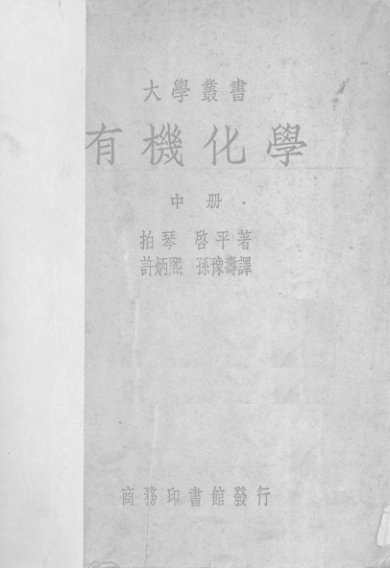 大學叢書
有機化學
中册
拍琴 啓平著
許炳熙 孫豫壽譯
商務印書館發行